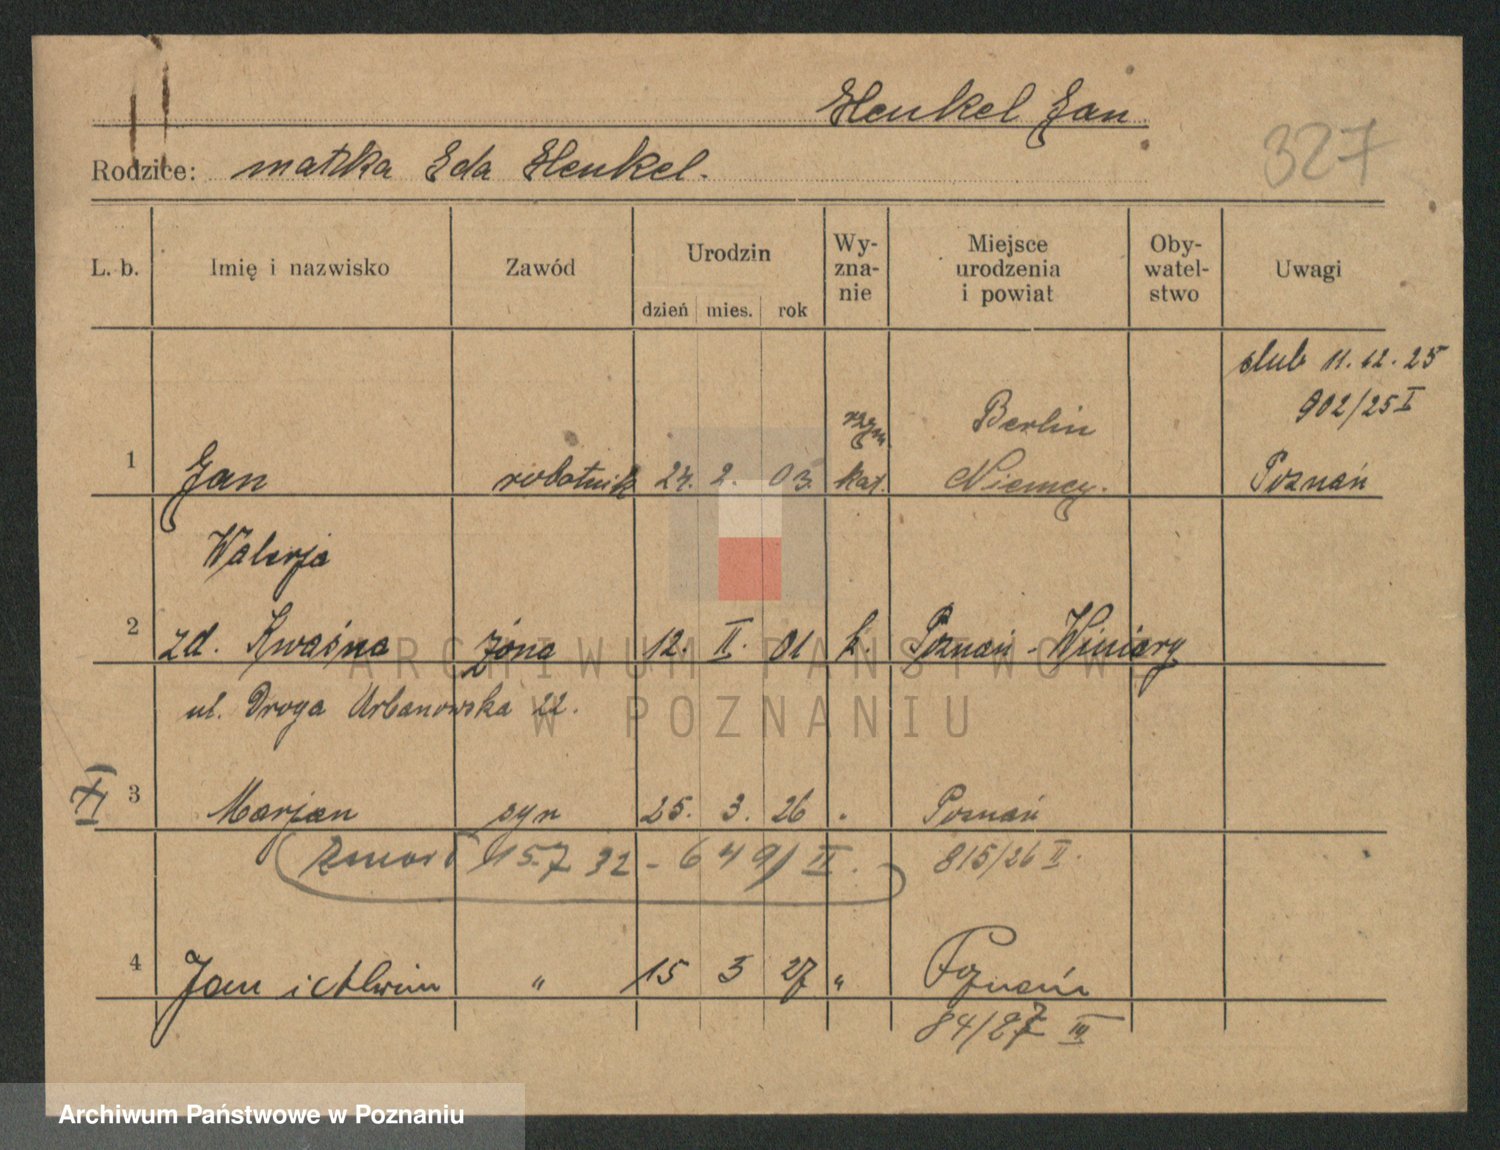 Henkel Jan
327
Rodzice: matka Eda Henkel.
L. b. Imię i nazwisko Zawód Urodzin dzień mies. rok Wy-zna-nie Miejsce urodzenia i powiat Oby-watel-stwo Uwagi
ślub 11.12.25
902/25 I
rzym Berlin
1 Jan robotnik 24. 2. 03. kat. Niemcy. Poznań
Walerja
2 zd. Kwaśna żona 12. II. 01 k. Poznań - Winiary
ARCHIWUM PAŃSTWOWE
ul. Droga Urbanowska 22.
W POZNANIU
3 Marjan syn 25. 3. 26 " Poznań
Zmarł 15.7 32 - 649/II. 815/26 II.
4 Jan i Alwin " 15 3 27 " Poznań
84/27 III
Archiwum Państwowe w Poznaniu